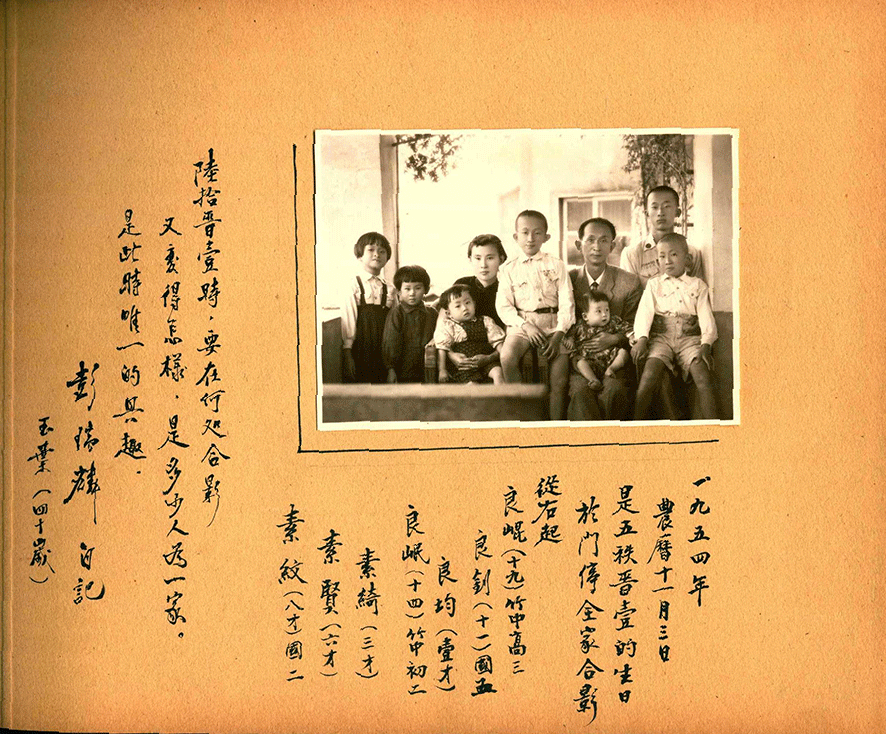 一九五四年
農曆十一月三日
是五秩晋壹的生日
於門停全家合影
從右起
良崐（十九）竹中高三
良釗（十一）國五
良均（壹才）
良岷（十四）竹中初二
素綺（三才）
素賢（六才）
素紋（八才）國二
陸拾晋壹時，要在何処合影
又変得怎樣，是多少人為一家。
是此時唯一的興趣。
彭瑞麟 自記
玉葉（四十歲）